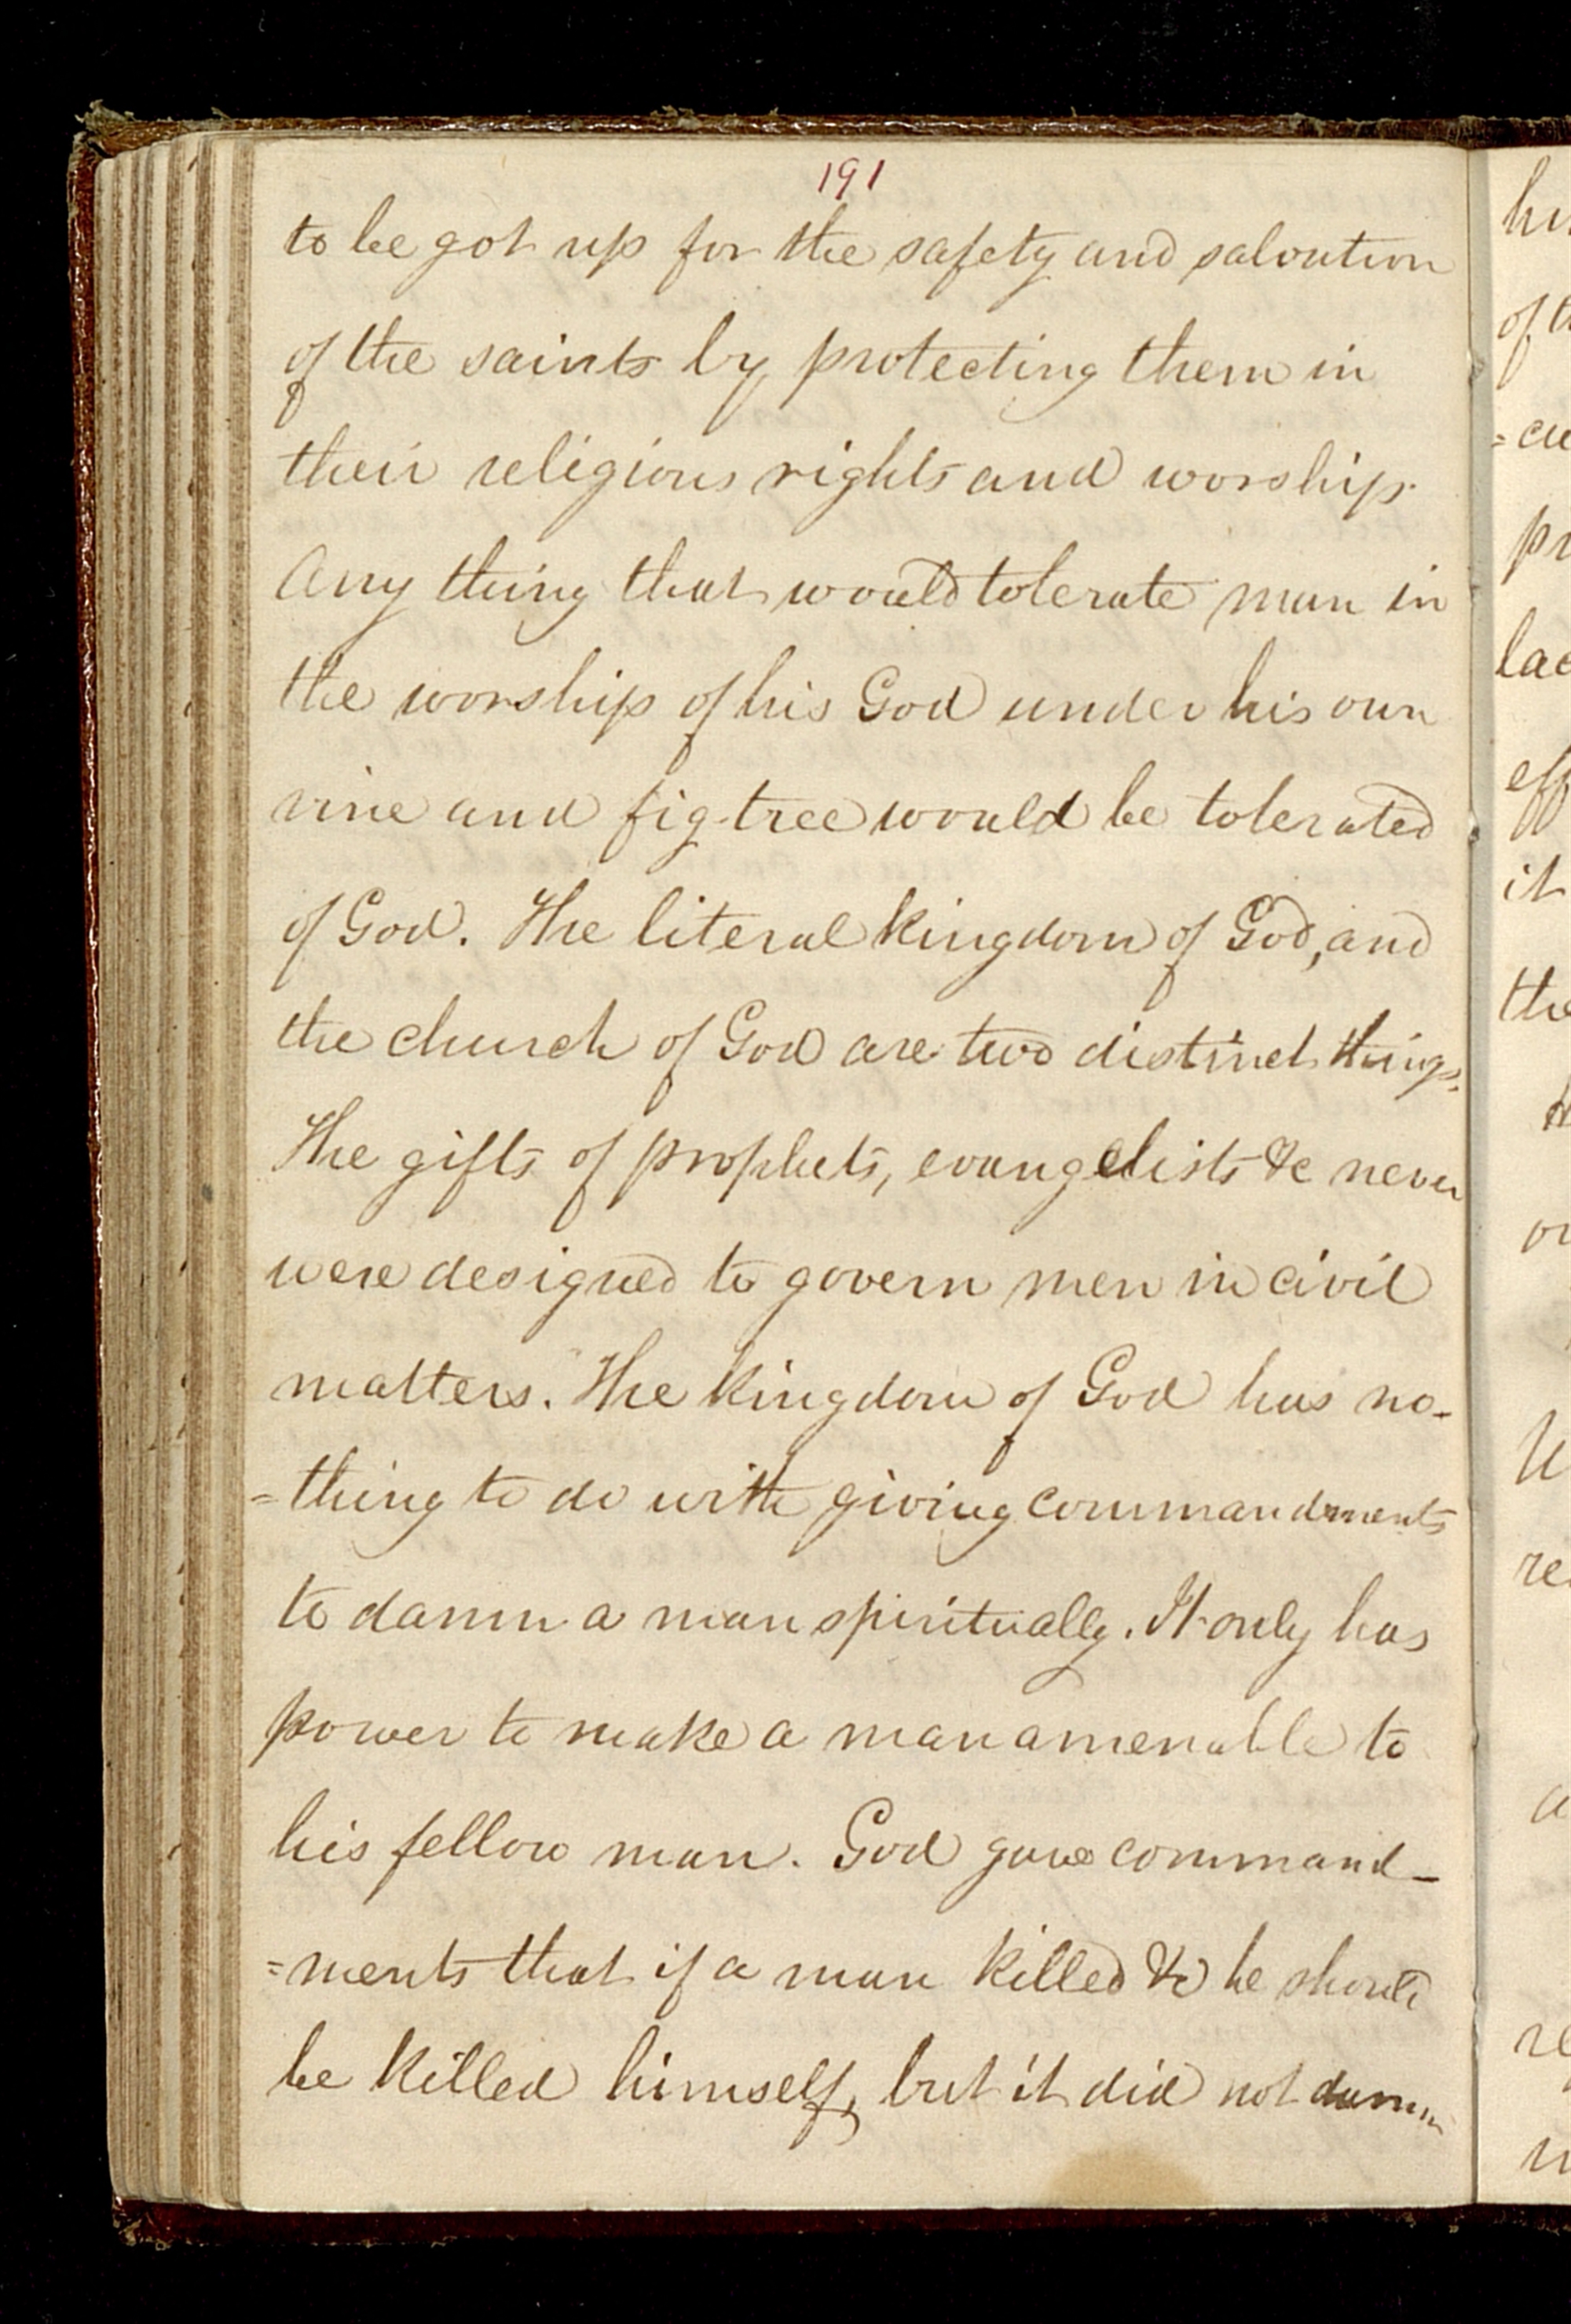 191
to be got up for the safety and salvation
of the saints by protecting them in
their religious rights and worship.
Any thing that would tolerate man in
the worship of his God under his own
vine and fig-tree would be tolerated
of God. The literal kingdom of God, and
the church of God are two distinct things.
The gifts of prophets, evangelists &c never
were designed to govern men in civil
matters. The kingdom of God has no-
=thing to do with giving commandments
to damn a man spiritually. It only has
power to make a man amenable to
his fellow man. God gave command-
=ments that if a man killed &c he should
be killed himself, but it did not damn
hi
of th
=cu
pr
lac
eff
it
the
or
re
a
re